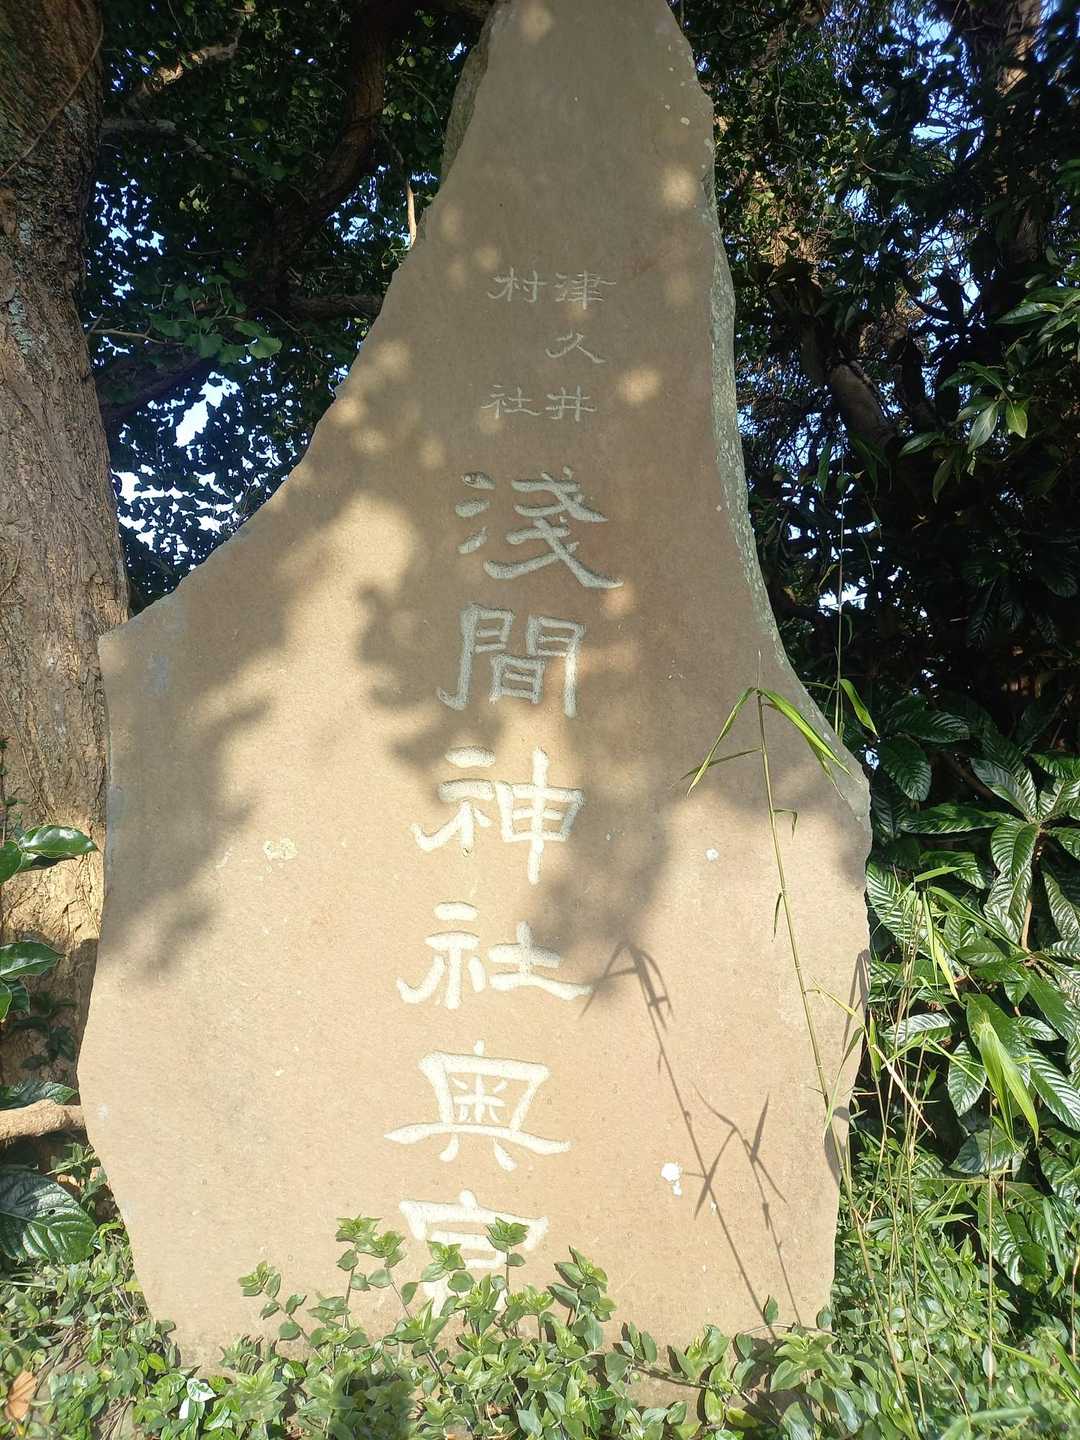 津久井
村社
淺間神社奥宮